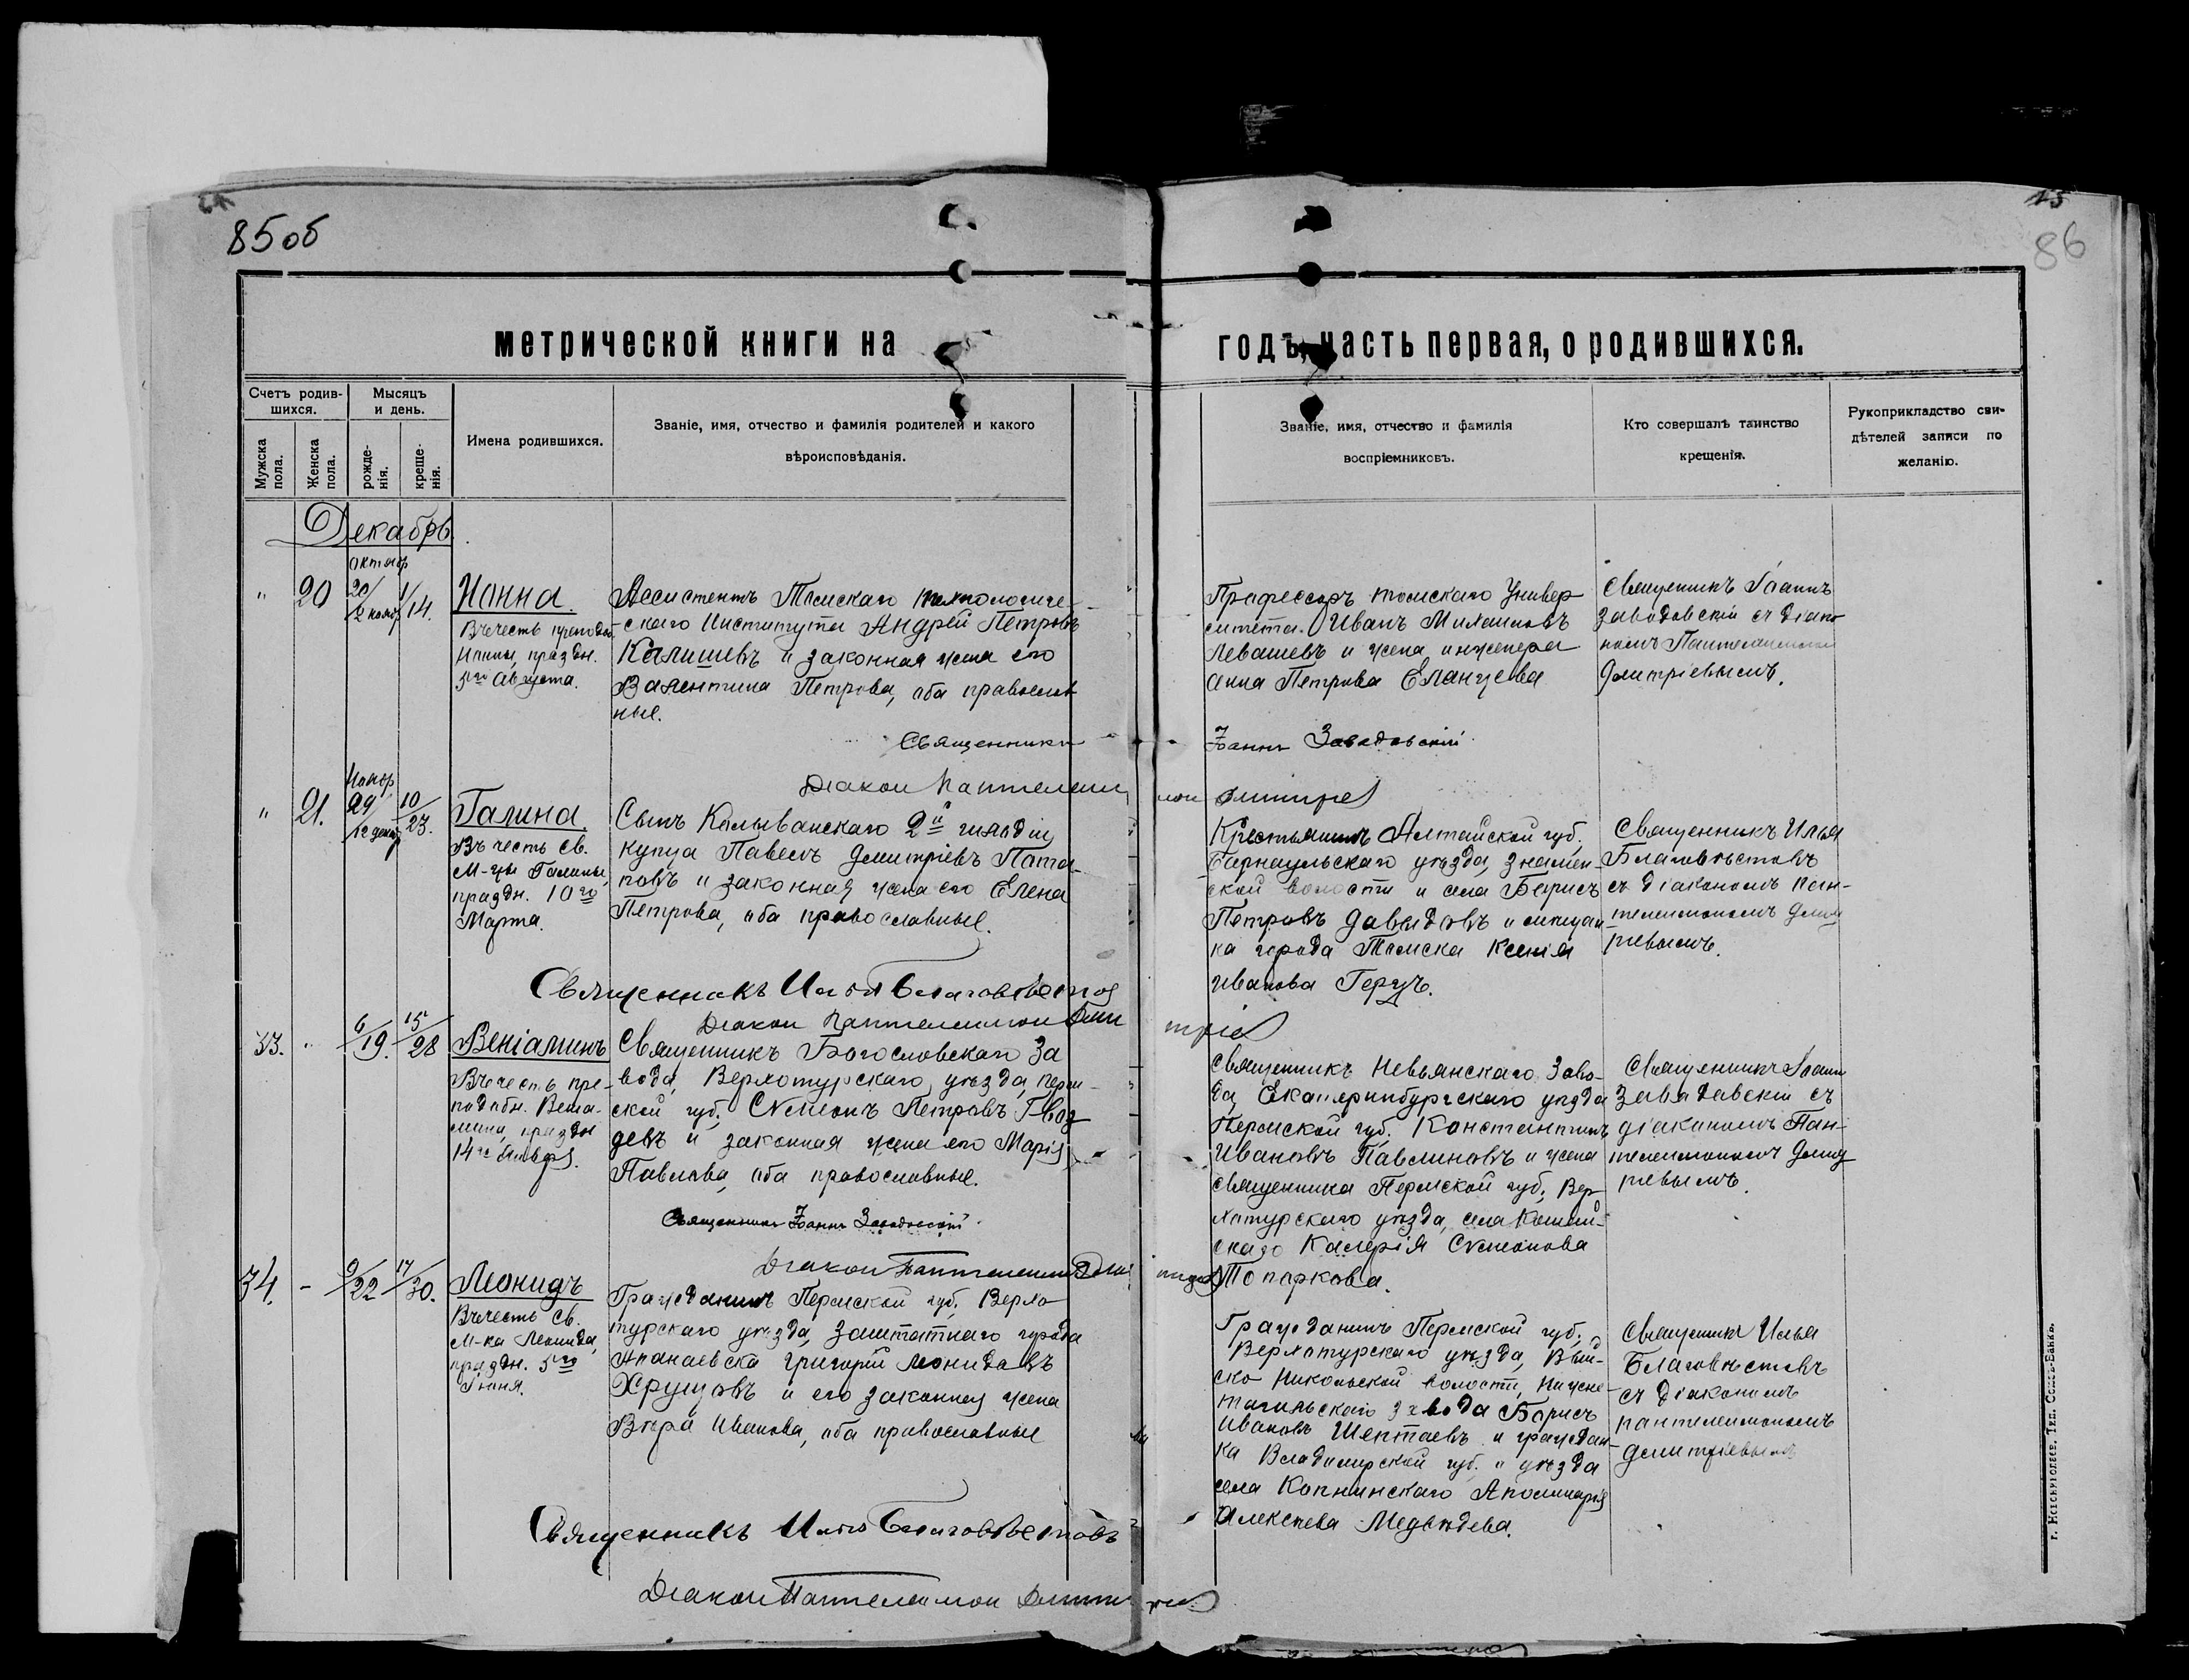 85 об
86
метрической книги на
годъ, часть первая, о родившихся.
Счетъ родив-
шихся.
Мѣсяцъ
и день.
Мужска
пола.
Женска
пола.
рожде-
нія.
креще-
нія.
Имена родившихся.
Званіе, имя, отчество и фамилія родителей и какого
вѣроисповѣданія.
Званіе, имя, отчество и фамилія
воспріемниковъ.
Кто совершалъ таинство
крещенія.
Рукоприкладство сви-
дѣтелей записи по
желанію.
Декабрь
" 20
октябр
20/2 нояб
1/14.
Нонна.
Въ честь преподоб.
Нонны, праздн.
5го Августа.
Ассистентъ Томскаго технологиче-
скаго Института Андрей Петровъ
Калишевъ и законная жена его
Валентина Петрова, оба православ
ные.
Профессоръ томскаго Универ
ситета Иванъ Михаиловъ
Левашевъ и жена инженера
Анна Петрова Еланцева
Священникъ Іоаннъ
Заводовскій съ діако
номъ Пантелеимономъ
Дмитріевымъ.
Священникъ Іоаннъ Заводовскій
Діакон Пантелеимон Дмитріев
" 21.
Нояб.
29/12 декаб
10/23.
Галина.
Въ честь св.
М-цы Галины,
праздн. 10го
Марта.
Сынъ Колыванскаго 2й гильдіи
купца Павелъ Дмитріевъ Пота-
повъ и законная жена его Елена
Петрова, оба православные.
Крестьянинъ Алтайской губ.
Барнаульскаго уѣзда, Знамен-
ской волости и села Борисъ
Петровъ Давыдовъ и мѣщан-
ка города Томска Ксенія
Иванова Герцъ.
Священникъ Илья
Благовѣстовъ
съ діакономъ Пан-
телеимономъ Дмит
ріевымъ.
Священникъ Илья Благовѣстов
Діакон Пантелеимон Дмитріев
33. "
6/19.
15/28
Веніаминъ
Въ честь пре-
подобн. Веніа-
мина, праздн
14го Января.
Священникъ Богословскаго За
вода, Верхотурскаго уѣзда, Перм-
ской губ. Симеонъ Петровъ Гвоз
девъ и законная жена его Марія
Павлова, оба православные.
Священникъ Невьянскаго Заво-
да, Екатеринбургскаго уѣзда
Пермской губ. Константинъ
Ивановъ Павлиновъ и жена
священника Пермской губ. Вер-
хотурскаго уѣзда, села
скаго Калерія Симеонова
Топоркова.
Священникъ Іоаннъ
Заводовскій съ
діакономъ Пан-
телеимономъ Дмит
ріевымъ.
Священникъ Іоаннъ Заводовскій
Діакон Пантелеимон Дмитріев
34. -
9/22
17/30.
Леонидъ
Въ честь Св.
М-ка Леонида,
праздн. 5го
Іюня.
Гражданинъ Пермской губ. Верхо
турскаго уѣзда, заштатнаго города
Апанаевска Григорій Леонидовъ
Хрущовъ и его законная жена
Вѣра Иванова, оба православные
Гражданинъ Пермской губ.,
Верхотурскаго уѣзда, Вый-
ско Никольской волости, Нижне-
тагильскаго завода Борисъ
Ивановъ Шептаевъ и граждан-
ка Владимирской губ. и уѣзда
села Копнинскаго Аполинарія
Алексѣева Медвѣдева.
Священникъ Илья
Благовѣстовъ
съ діакономъ
пантелеимономъ
Дмитріевымъ
Священникъ Илья Благовѣстовъ
Діакон Пантелеимон Дмитріев